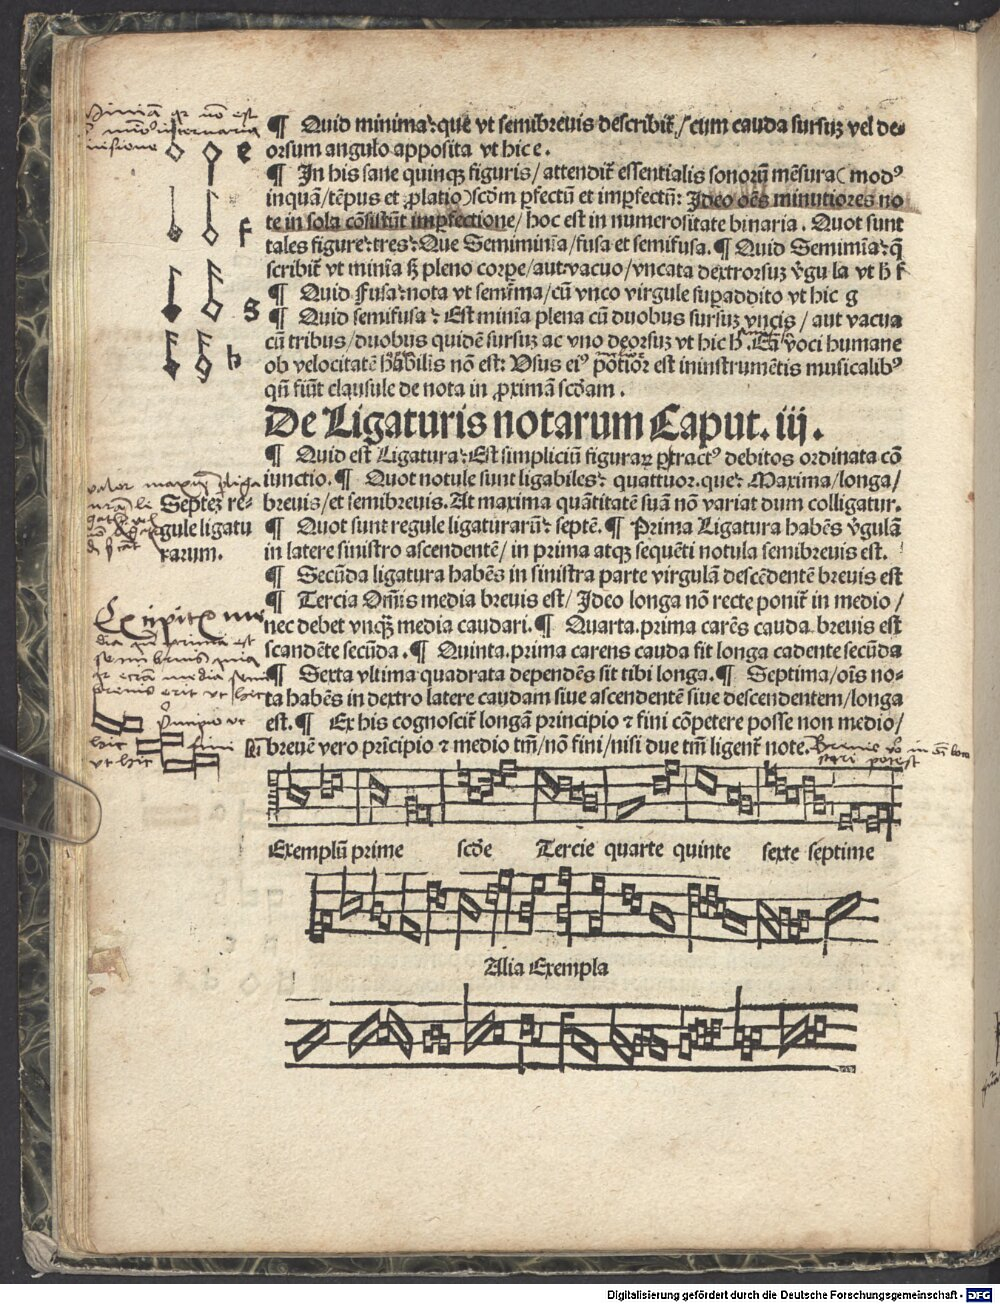 ¶ Quid minima: que vt semibreuis describit᷑/ cum cauda sursuꝫ vel de-
orsum angulo apposita vt hic e.
e
¶ In his sane quinqꝫ figuris/ attendit᷑ essentialis sonorū mēsura( modꝰ
inquā/ tēpus et ꝓlatio) scḋm ꝑfectū et imꝑfectū: Ideo oēs minutiores no
te in sola cōsistūt imꝑfectione/ hoc est in numerositate binaria. Quot sunt
f
tales figure: tres: Que Semiminīa/ fusa et semifusa. ¶ Quid Semimīa: q̄
scribit᷑ vt minīa sꝫ pleno corꝑe/ aut vacuo/ vncata dextrorsuꝫ v̄gu la vt ḣ f
¶ Quid Fusa: nota vt semīma/ cū vnco virgule suꝑaddito vt hic g
g
¶ Quid semifusa: Est minīa plena cū duobus sursuꝫ vncis/ aut vacua
cū tribus/ duobus quidē sursuꝫ ac vno deorsuꝫ vt hic h. Eā voci humane
h
ob velocitatē habilis nō est: Vsus eiꝰ potior est in instrumētis musicalibꝰ
qn̄ fiūt clausule de nota in ꝓximā scḋam.
De Ligaturis notarum Caput. iij.
¶ Quid est Ligatura: Est simpliciū figuraꝝ ꝑ tractꝰ debitos ordinata cō
iunctio. ¶ Quot notule sunt ligabiles: quattuor. que: Maxima/ longa/
Septeꝫ re-
gule ligatu
rarum.
breuis/ et semibreuis. At maxima quātitatē suā nō variat dum colligatur.
¶ Quot sunt regule ligaturarū: septē. ¶ Prima Ligatura habēs v̄gulā
in latere sinistro ascendentē/ in prima atqꝫ sequēti notula semibreuis est.
¶ Secūda ligatura habēs in sinistra parte virgulā descēdentē breuis est
¶ Tercia Om̄is media breuis est/ Ideo longa nō recte ponit᷑ in medio/
nec debet vnqꝫ media caudari. ¶ Quarta. prima carēs cauda breuis est
scandēte secūda. ¶ Quinta. prima carens cauda fit longa cadente secūda
¶ Sexta vltima quadrata dependēs sit tibi longa. ¶ Septima/ oīs no-
ta habēs in dextro latere caudam siue ascendentē siue descendentem/ longa
est. ¶ Ex his cognoscit᷑ longā principio ⁊ fini cōpetere posse non medio/
breuē vero prīcipio ⁊ medio tm̄/ nō fini/ nisi due tm̄ ligent᷑ note.
Exemplū prime scḋe Tercie quarte quinte sexte septime
Alia Exempla
Digitalisierung gefördert durch die Deutsche Forschungsgemeinschaft - DFG